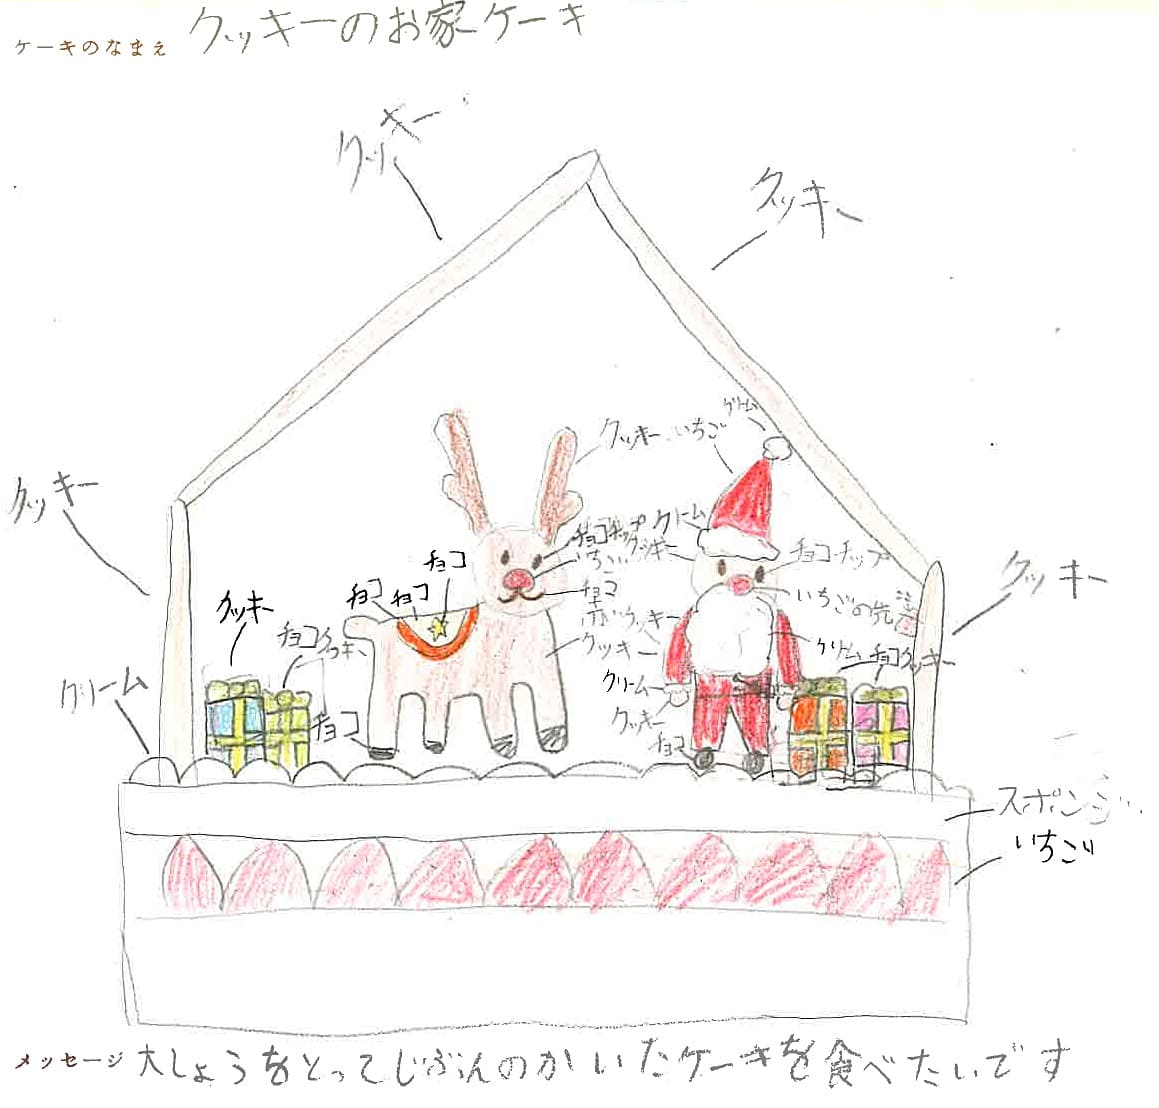 ケーキのなまえ クッキーのお家ケーキ
クッキー
クッキー
クリーム
クッキー いちご
クッキー
チョコチップ クリーム
クッキー
チョコ
いちご
チョコチップ
クッキー
チョコ チョコ
チョコ
いちごの先
クッキー
赤いクッキー
チョコクッキー
クッキー
クリーム チョコクッキー
クリーム
クリーム
クッキー
チョコ
チョコ
スポンジ
いちご
メッセージ 大しょうをとってじぶんのかいたケーキを食べたいです